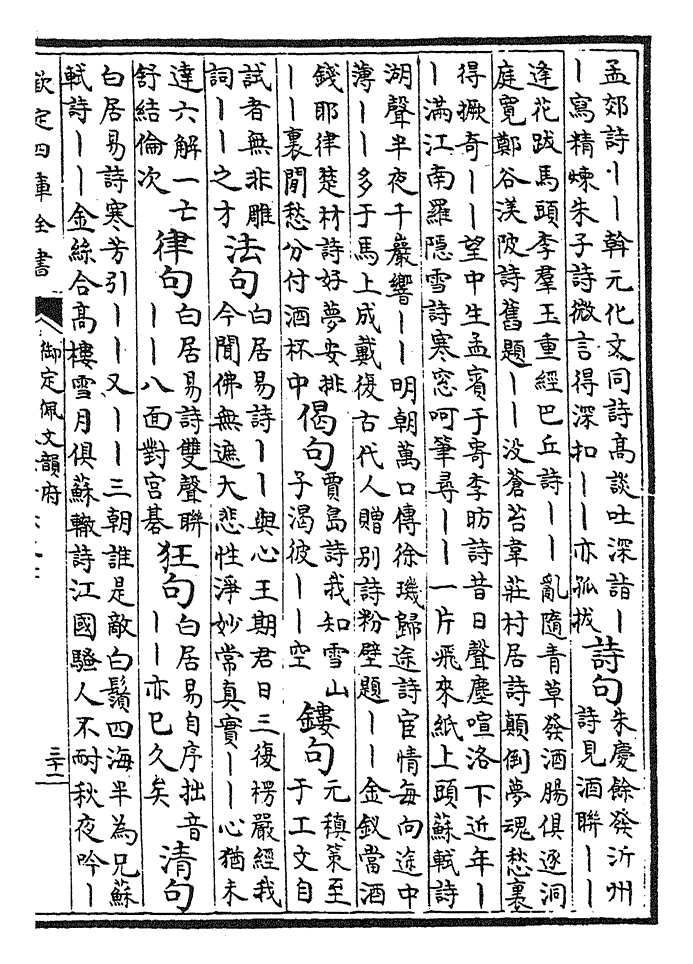 孟郊詩丨丨斡元化文同詩髙談吐深詣丨
丨寫精煉朱子詩微言得深扣丨丨亦孤拔
詩句
朱慶餘發沂州
詩見酒聯丨丨
逢花跋馬頭李羣玉重經巴丘詩丨丨亂隨青草發酒腸俱逐洞
庭寛鄭谷渼陂詩舊題丨丨没蒼苔韋莊村居詩顛倒夢魂愁裏
得撅奇丨丨望中生孟賓于寄李昉詩昔日聲塵喧洛下近年丨
丨滿江南羅隱雪詩寒窓呵筆尋丨丨一片飛來紙上頭蘇軾詩
湖聲半夜千巖響丨丨明朝萬口傳徐璣歸途詩宦情每向途中
薄丨丨多于馬上成戴復古代人贈别詩粉壁題丨丨金釵當酒
錢耶律楚材詩好夢安排
丨丨裏閒愁分付酒杯中
偈句
賈島詩我知雪山
子渴彼丨丨空
鏤句
元稹策至
于工文自
試者無非雕
詞丨丨之才
法句
白居易詩丨丨與心王期君日三復楞嚴經我
今聞佛無遮大悲性淨妙常真實丨丨心猶未
達六解一亡
舒結倫次
律句
白居易詩雙聲聯
丨丨八面對宫棊
狂句
白居易自序拙音
丨丨亦已久矣
清句
白居易詩寒芳引丨丨又丨丨三朝誰是敵白鬚四海半為兄蘇
軾詩丨丨金絲合髙樓雪月俱蘇轍詩江國騷人不耐秋夜吟丨
欽定四庫全書
御定佩文韻府
三十一